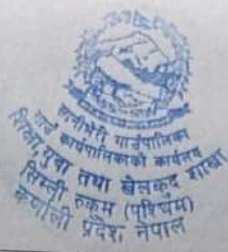 सानीभेरी गाउँपालिका
गाउँ कार्यपालिकाको कार्यालय
शिक्षा, युवा तथा खेलकुद शाखा
सिम्ली, रुकुम (पश्चिम)
कर्णाली प्रदेश, नेपाल